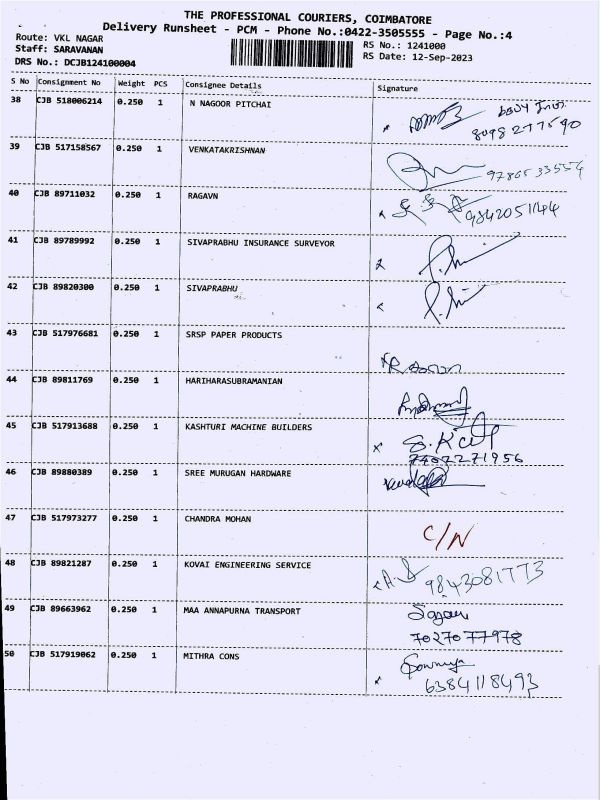 THE PROFESSIONAL COURIERS, COIMBATORE
Delivery Runsheet - PCM - Phone No.:0422-3505555 - Page No.:4
Route: VKL NAGAR
RS No.: 1241000
Staff: SARAVANAN
RS Date: 12-Sep-2023
DRS No.: DCJB124100004
S No Consignment No Weight PCS Consignee Details Signature
38 CJB 518006214 0.250 1 N NAGOOR PITCHAI
8098277590
39 CJB 517158567 0.250 1 VENKATAKRISHNAN
40 CJB 89711032 0.250 1 RAGAVN
9842051144
41 CJB 89789992 0.250 1 SIVAPRABHU INSURANCE SURVEYOR
42 CJB 89820300 0.250 1 SIVAPRABHU
43 CJB 517976681 0.250 1 SRSP PAPER PRODUCTS
44 CJB 89811769 0.250 1 HARIHARASUBRAMANIAN
45 CJB 517913688 0.250 1 KASHTURI MACHINE BUILDERS
7402271956
46 CJB 89880389 0.250 1 SREE MURUGAN HARDWARE
47 CJB 517973277 0.250 1 CHANDRA MOHAN
C/N
48 CJB 89821287 0.250 1 KOVAI ENGINEERING SERVICE
9843081773
49 CJB 89663962 0.250 1 MAA ANNAPURNA TRANSPORT
7027077978
50 CJB 517919062 0.250 1 MITHRA CONS
Sowmya
6384118493